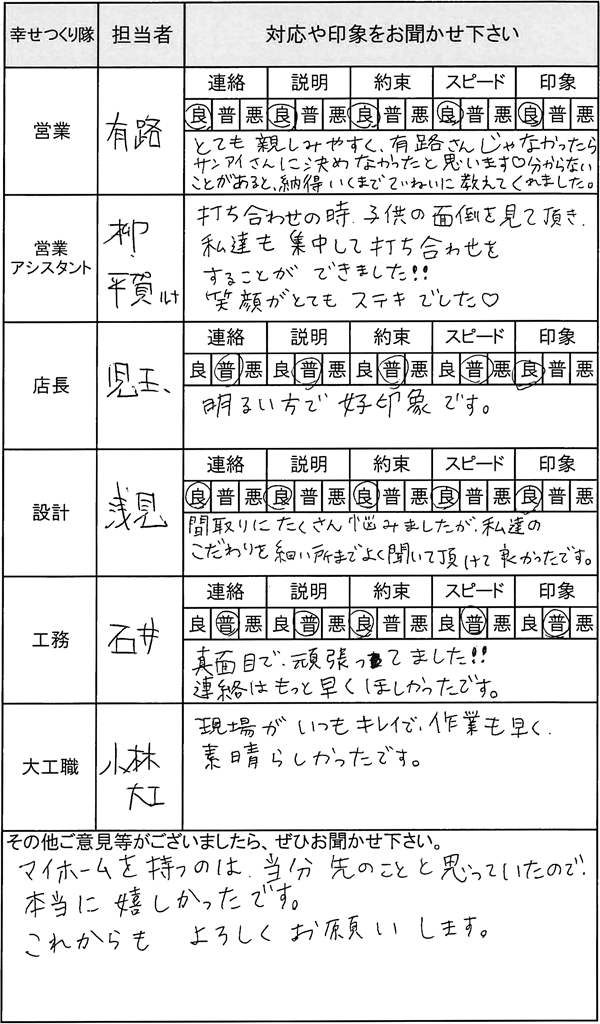 幸せつくり隊 担当者 対応や印象をお聞かせ下さい
営業 有路
連絡 説明 約束 スピード 印象
良 普 悪 良 普 悪 良 普 悪 良 普 悪 良 普 悪
とても親しみやすく、有路さんじゃなかったら
サンアイさんに決めなかったと思います♡分からない
ことがあると、納得いくまでていねいに教えてくれました。
営業
アシスタント
柳
・
平賀
打ち合わせの時、子供の面倒を見て頂き、
私達も集中して打ち合わせを
することができました!!
笑顔がとてもステキでした♡
店長 児玉、
連絡 説明 約束 スピード 印象
良 普 悪 良 普 悪 良 普 悪 良 普 悪 良 普 悪
明るい方で好印象です。
設計 浅見
連絡 説明 約束 スピード 印象
良 普 悪 良 普 悪 良 普 悪 良 普 悪 良 普 悪
間取りにたくさん悩みましたが、私達の
こだわりを細い所までよく聞いて頂けて良かったです。
工務 石井
連絡 説明 約束 スピード 印象
良 普 悪 良 普 悪 良 普 悪 良 普 悪 良 普 悪
真面目で、頑張ってました!!
連絡はもっと早くほしかったです。
大工職 小林
大工
現場がいつもキレイで、作業も早く、
素晴らしかったです。
その他ご意見等がございましたら、ぜひお聞かせ下さい。
マイホームを持つのは、当分先のことと思っていたので、
本当に嬉しかったです。
これからも よろしくお願いします。